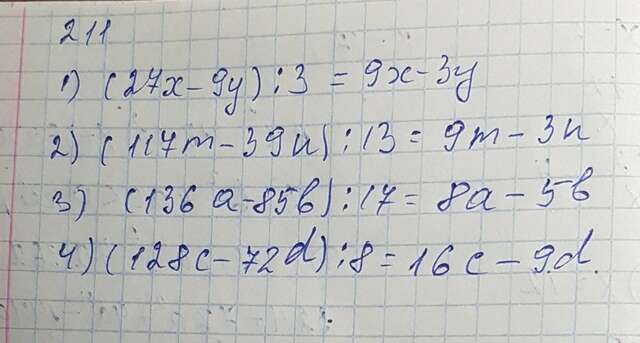 211
1) (27x - 9y) : 3 = 9x - 3y
2) (117m - 39n) : 13 = 9m - 3n
3) (136a - 85b) : 17 = 8a - 5b
4) (128c - 72d) : 8 = 16c - 9d.